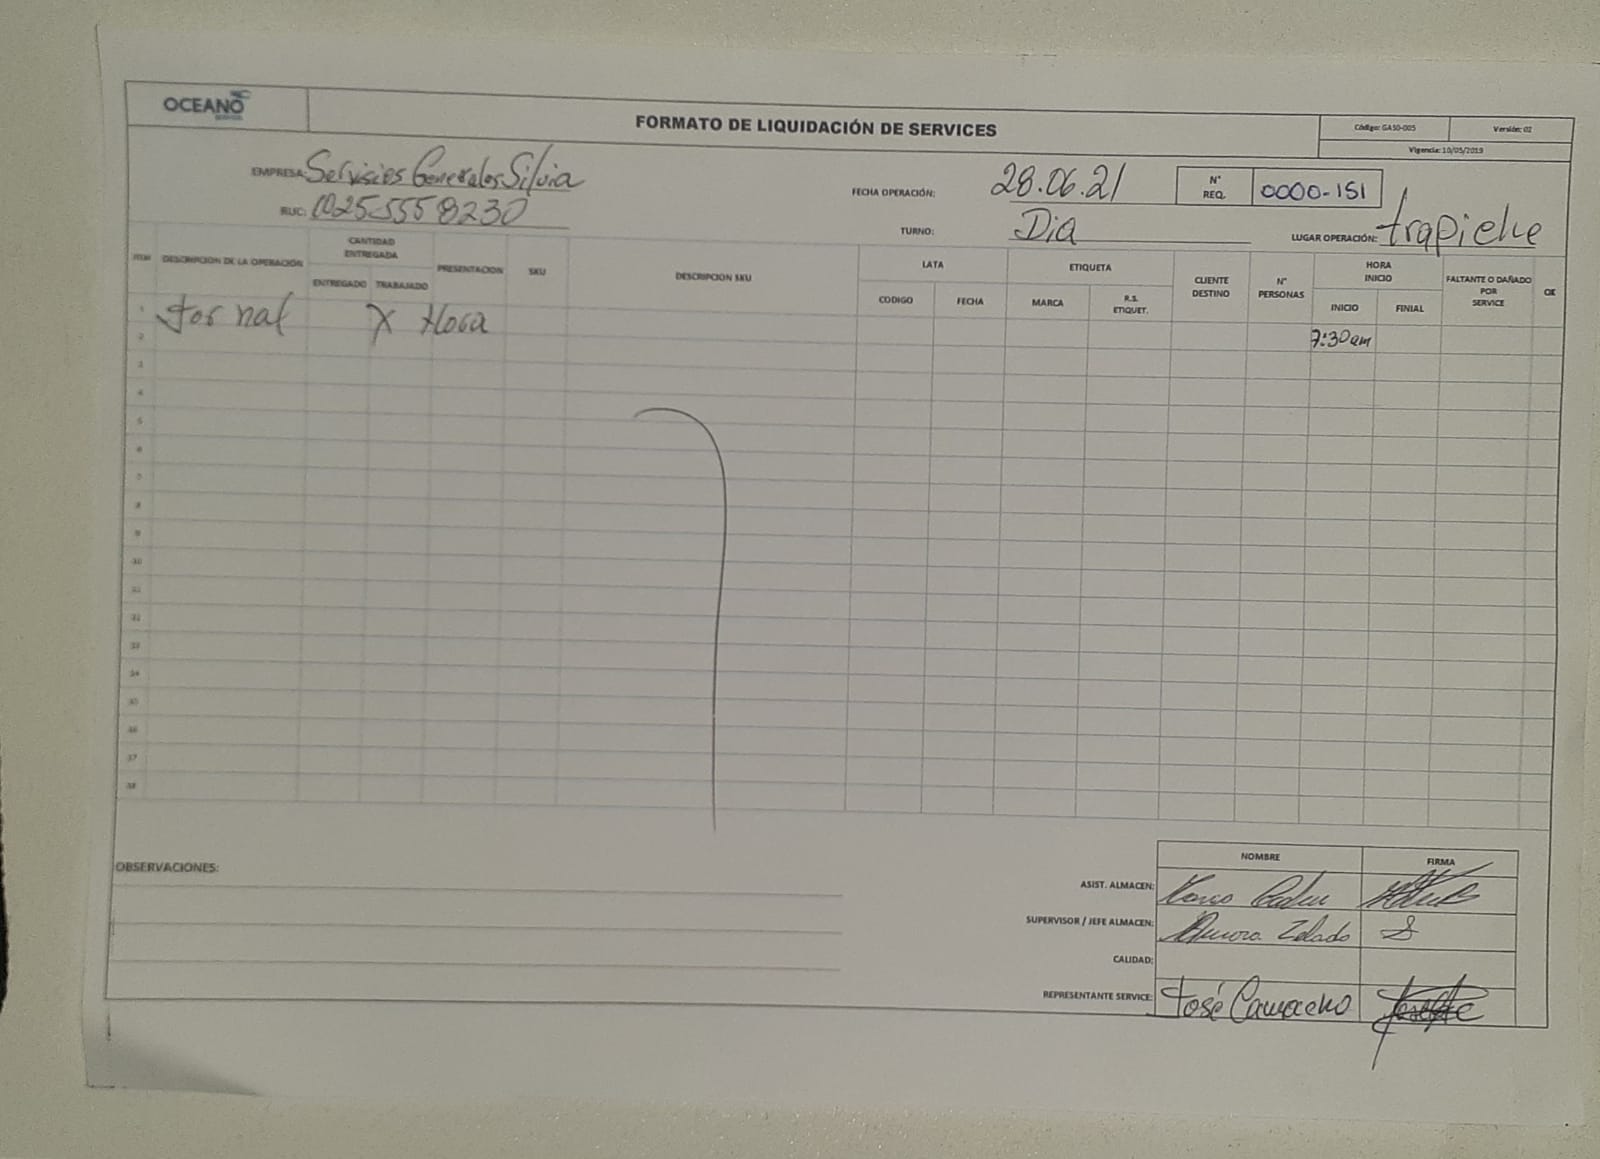 OCEANO
SERVICES
FORMATO DE LIQUIDACIÓN DE SERVICES
Código: GASO-005
Versión: 02
Vigencia: 10/05/2019
EMPRESA: Servicies Generales Silvia
RUC: 10255558230
FECHA OPERACIÓN: 28.06.21
N° REQ. 0000-151
TURNO: Dia
LUGAR OPERACIÓN: trapiche
ITEM
DESCRIPCION DE LA OPERACIÓN
CANTIDAD ENTREGADA
ENTREGADO
TRABAJADO
PRESENTACION
SKU
DESCRIPCION SKU
LATA
CODIGO
FECHA
ETIQUETA
MARCA
R.S. ETIQUET.
CLIENTE DESTINO
N° PERSONAS
HORA INICIO
INICIO
FINIAL
FALTANTE O DAÑADO POR SERVICE
OK
1 Jornal X Hora
2 7:30am
3
4
5
6
7
8
9
10
11
12
13
14
15
16
17
18
OBSERVACIONES:
NOMBRE
FIRMA
ASIST. ALMACEN:
SUPERVISOR / JEFE ALMACEN:
CALIDAD:
REPRESENTANTE SERVICE: José Camacho